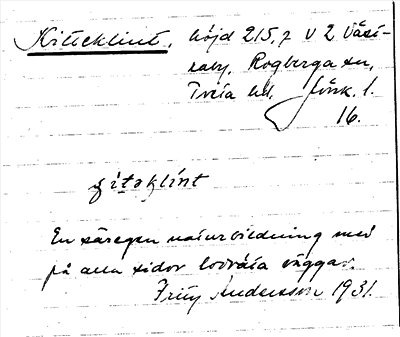 Kitteklint, höjd 215,7 V 2 Väst-
raby, Rogberga sn,
Tveta hd. Jönk. l.
16.
En säregen naturbildning med
på alla sidor lodräta väggar.
Fritz Andersson 1931.